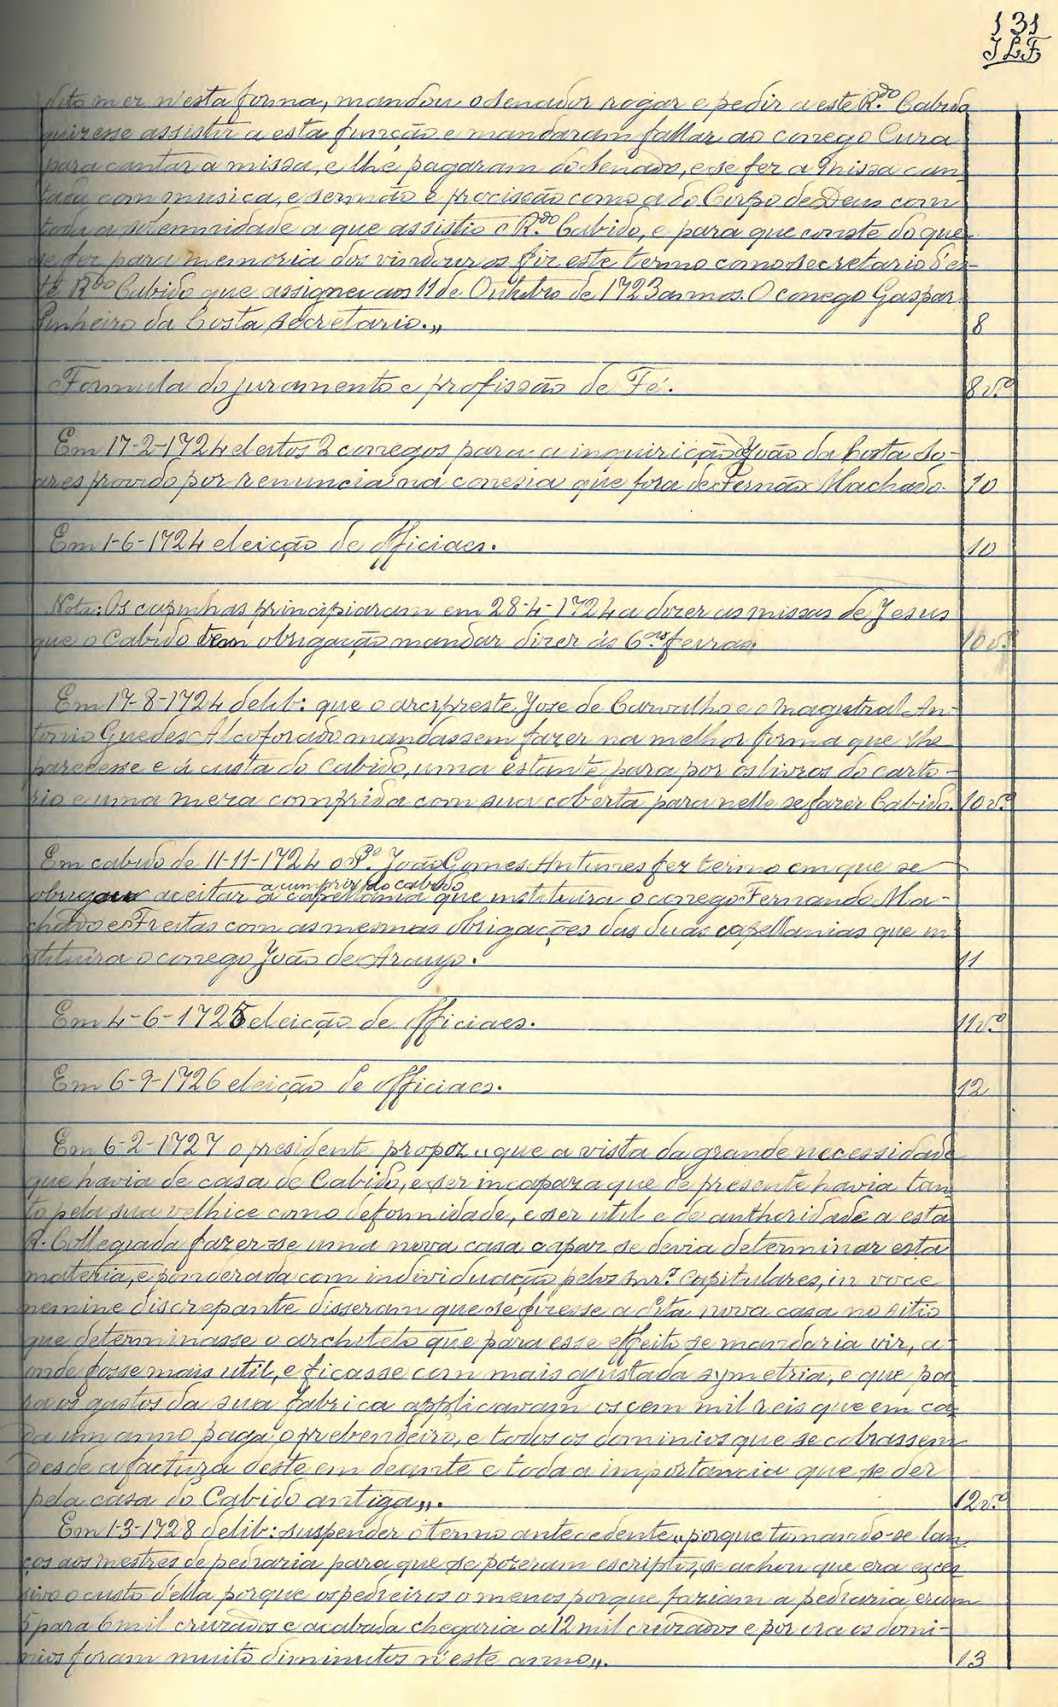 131
JLF
dito mez n'esta forma, mandou o senador rogar e pedir a este R.do Cabido
quizesse assistir a esta funcção e mandaram fallar ao conego Cura
para cantar a missa, e lhe pagaram do senado, e se fez a missa can-
tada com musica, e sermão e procissão como a do Corpo de Deus com
toda a solemnidade a que assistio o R.do Cabido, e para que conste do que
se fez para memoria dos vindouros fiz este termo como secretario d'es-
te R.do Cabido que assignei aos 11 de Outubro de 1723 annos. O conego Gaspar
Pinheiro da Costa secretario.,, 8
Formula do juramento e profissão de Fé. 8 v.º
Em 17-2-1724 eleitos 2 conegos para a inquirição João da Costa So-
ares provido por renuncia na conesia que fora de Fernão Machado. 10
Em 1-6-1724 eleição de officiaes. 10
Nota: Os capinhas principiaram em 28-4-1724 a dizer as missas de Jesus
que o Cabido tem obrigação mandar dizer ás 6.as feiras. 10 v.º
Em 17-8-1724 delib: que o arcipreste José de Carvalho e o magistral An-
tonio Guedes Alcoforado mandassem fazer na melhor forma que lhe
parecesse e á custa do Cabido, uma estante para por os livros do carto-
rio e uma meza comprida com sua coberta para nelle se fazer Cabido. 10 v.º
Em cabido de 11-11-1724 o P.e João Gomes Antunes fez termo em que se
obrigou aceitar a cumprir do cabido a capellania que instituira o conego Fernando Ma-
chado e Freitas com as mesmas obrigações das duas capellanias que in
stituira o conego João de Araujo. 11
Em 4-6-1725 eleição de officiaes. 11 v.º
Em 6-9-1726 eleição de officiaes. 12
Em 6-2-1727 o presidente propoz ,,que a vista da grande necessidade
que havia de casa de Cabido, e ser incapaz a que de presente havia tan
to pela sua velhice como deformidade, e ser util e de authoridade a esta
R. Collegiada fazer-se uma nova casa capaz se devia determinar esta
materia, e ponderada com individuação pelos snr.s capitulares, in voce
nemine discrepante disseram que se fizesse a dita nova casa no sitio
que determinasse o architeto que para esse effeito se mandaria vir, a-
onde fosse mais util, e ficasse com mais ajustada symetria, e que pa
ra os gastos da sua fabrica applicavam os cem mil reis que em ca
da um anno paga o prebendeiro, e todos os dominios que se cobrassem
desde a factura deste em deante e toda a importancia que se der
pela casa do Cabido antiga,,. 12 v.º
Em 1-3-1728 delib: suspender o termo antecedente ,,porque tomando-se lan-
ços aos mestres de pedraria para que se pozeram escriptos, se achou que era exces
sivo o custo d'ella porque os pedreiros o menos porque faziam a pedraria eram
5 para 6 mil cruzados e acabada chegaria a 12 mil cruzados e por ora os domi-
nios foram muito diminutos n'este anno,,. 13